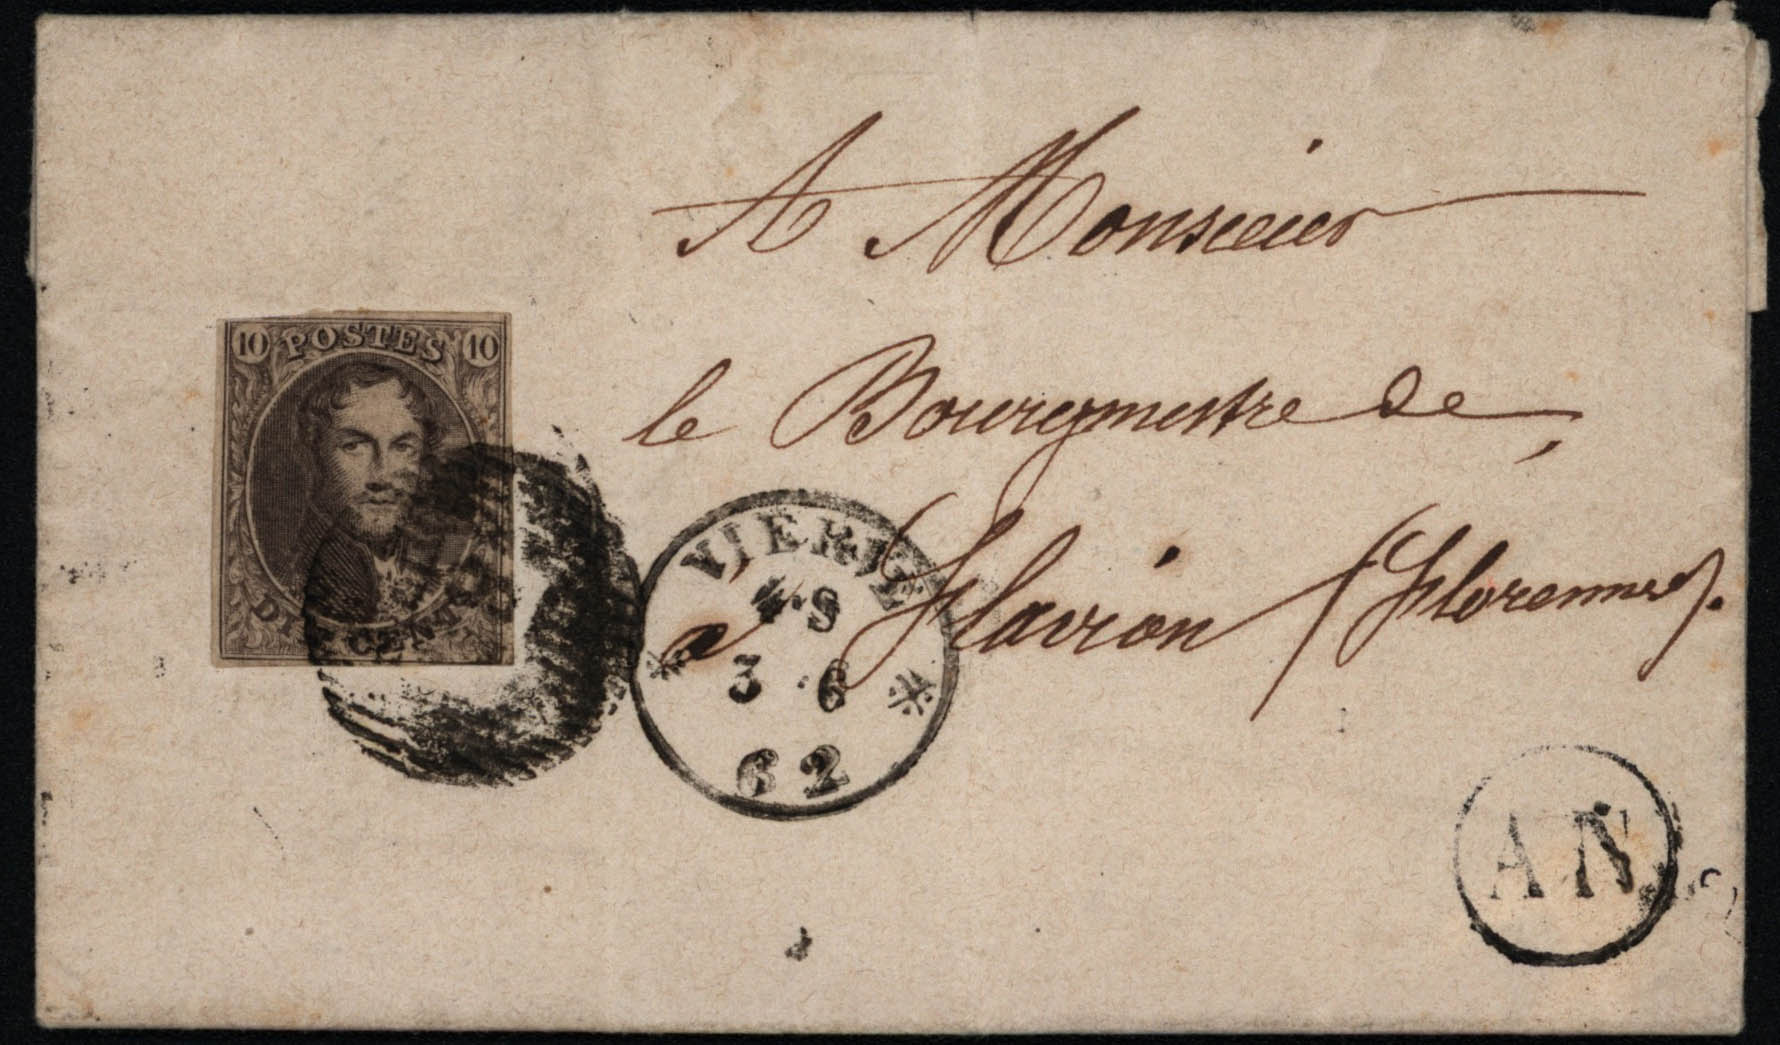 A Monsieur
le Bourgmestre de
à Flavion (Florennes).
10 POSTES 10
DIX CENTS
VIERVE
4·S
3 6
62
A N